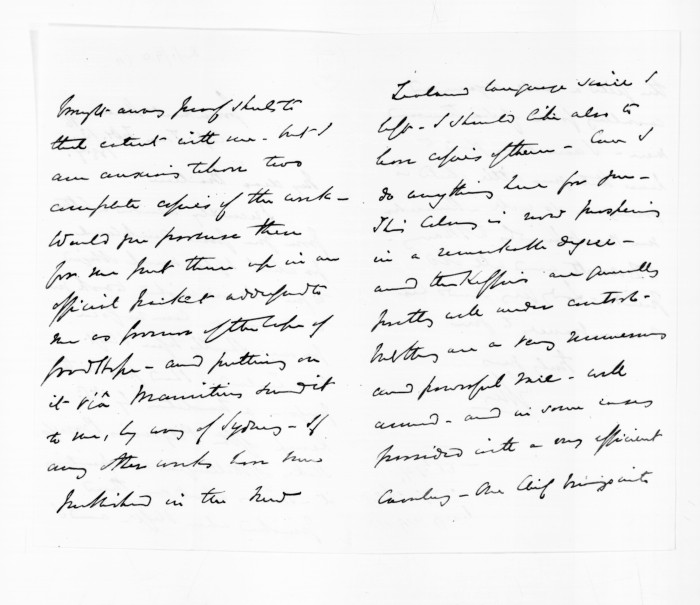 brought away proof sheets to
that extent with me - but I
am anxious to have two
complete copies of the work -
Would you procure them
for me put them up in an
official packet addressed to
me as Governor of the Cape of
Good Hope - and putting on
it viâ Mauritius send it
to me, by way of Sydney - If
any other works have been
published in the New
Zealand language since I
left - I should like also to
have copies of them - Can I
do anything here for you -
This Colony is now prospering
in a remarkable degree -
and the Kaffirs are generally
pretty well under control -
but they are a very numerous
and powerful race - well
armed - and in some cases
provided with a very efficient
Cavalry - One Chief